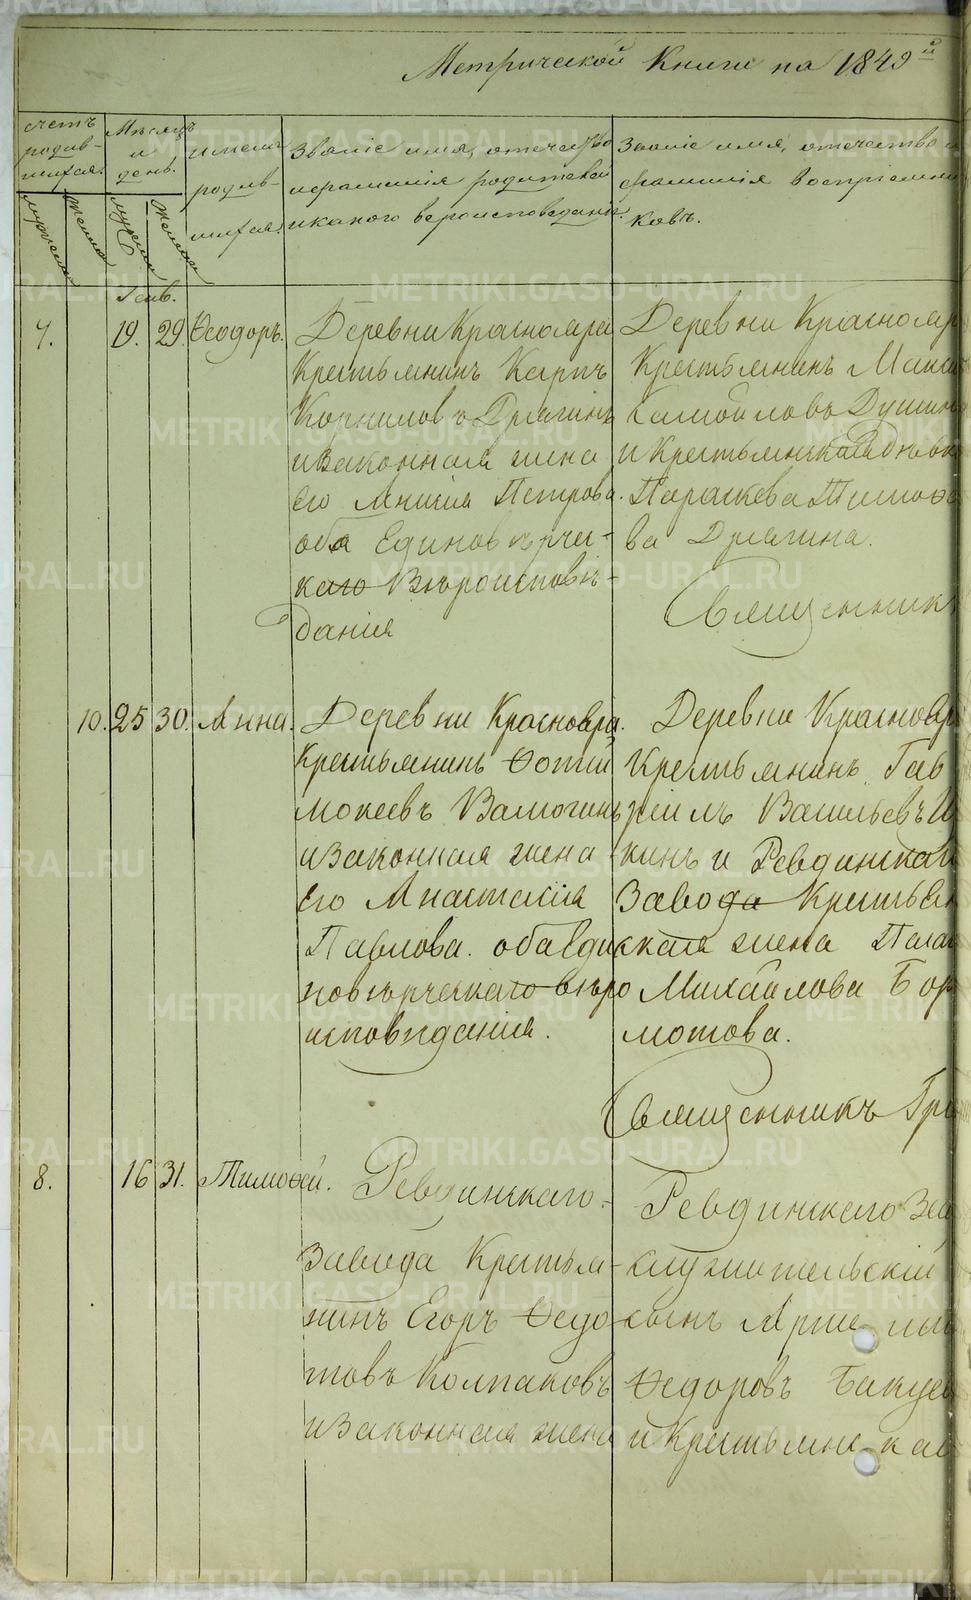 Метрической Книги на 1849й
счетъ родив-шихся.
мужеска
женска
Мѣсяцъ и день.
мужеска
женска
имена родив-шихся.
Званіе имя, отечество
и фамилія родителей
и какого вероисповеданія.
Званіе имя, отечество и
фамилія воспріемни
ковъ.
Генв.
7. 19. 29. Ѳеодоръ.
Деревни Краснояра
Крестьянинъ Карпъ
Корниловъ Дрягинъ
и законная жена
его Анисія Петрова.
оба Единовѣрче-
скаго Вѣроисповѣ-
данія
Деревни Краснояр
Крестьянинъ Макси
Самойловъ Душин
и Крестьянская дѣвк
Параскева Тимоѳе
ва Дрягина.
Священникъ
10. 25 30. Анна.
Деревни Краснояра.
Крестьянинъ Фотій
Мокеевъ Валюгинъ
и законная жена
его Анастасія
Павлова. оба еди
новѣрческаго вѣро
исповѣданія.
Деревни Краснояр
Крестьянинъ Гав
ріилъ Васильевъ
кинъ и Ревдинскаго
Завода Крестьян
ская жена Пелаг
Михайлова Бор
мотова.
Священникъ Гри
8. 16 31. Тимоѳей.
Ревдинскаго-
Завода Крестья-
нинъ Егоръ Ѳедо
товъ Колпаковъ
и законная жена
Ревдинскаго За
служительскій
сынъ
Ѳедоровъ
и Крестьянская
METRIKI.GASO-URAL.RU